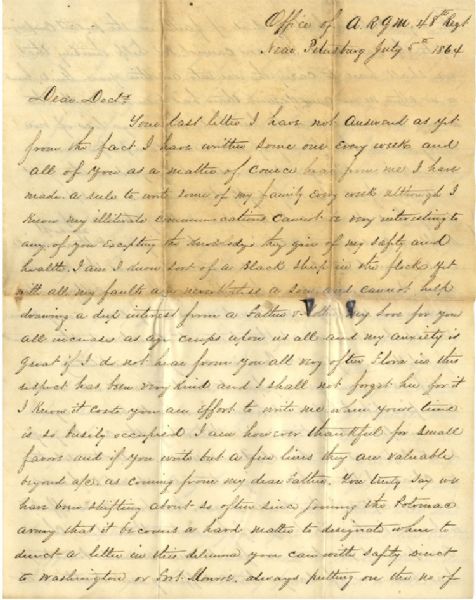 Office of A.R.Q.M. 48th Regt
Near Petersburg July 5th 1864
Dear Doct.
Your last letter I have not answered as yet
from the fact I have written some one every week and
all of you as a matter of cource hear from me I have
made a rule to write some of my family every week although I
know my illiterate communications cannot be very interesting to
any of you excepting the knowledge they give of my safty and
health. I am I know sort of a Black Sheep in the flock yet
with all my faults am nevertheless a Son and cannot help
drawing a deep interest from a Father My love for you
all increases as age creeps upon us all and my anxiety is
great if I do not hear from you all very often Flora in this
respect has been very kind and I shall not forget her for it
I know it costs you an effort to write me when your time
is so busily occupied I am however thankful for small
favors and if you write but a few lines they are valuable
beyond all as coming from my dear Father. You truly say we
have been shifting about so often since joining the Potomac
army that it becomes a hard matter to designate where to
direct a letter in this dilemma you can with safty direct
to Washington or Fort Monroe. always putting on the no of